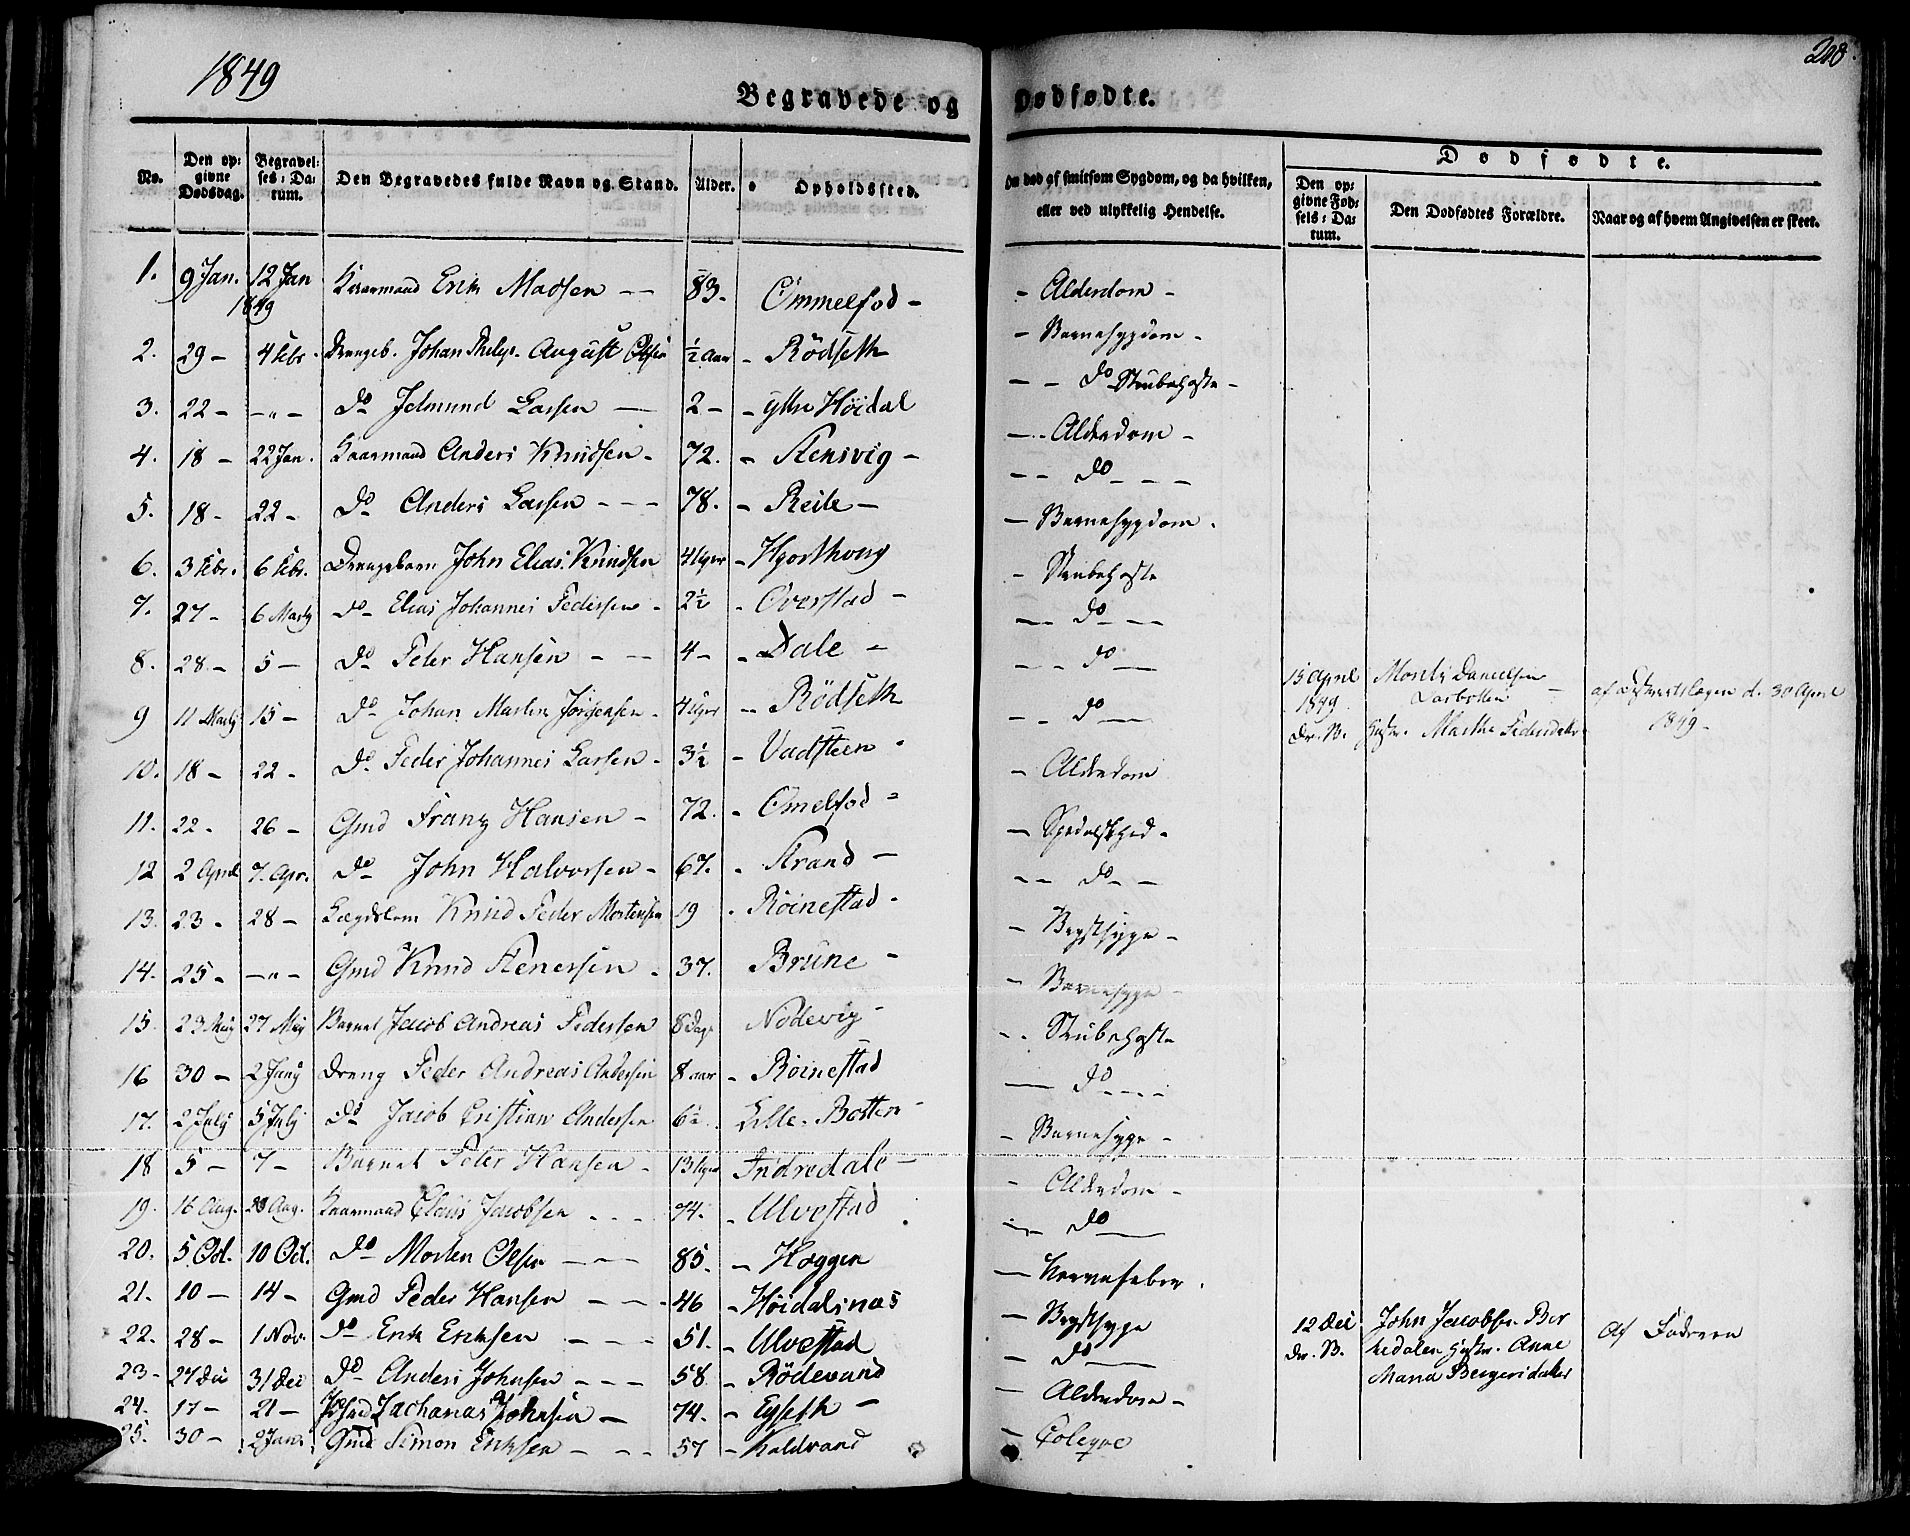 1849
208.
Begravede og Dødfødte.
No. | Den opgivne Dødsdag. | Begravelses-Datum. | Den Begravedes fulde Navn og Stand. | Alder. | Opholdssted. | Om død af smitsom Sygdom, og da hvilken, eller ved ulykkelig Hendelse.
Dødfødte.
Den opgivne Fødsels-Datum. | Den Dødfødtes Forældre. | Naar og af hvem Angivelsen er skeet.
1. 9 Jan. 12 Jan 1849 Kaarmand Erik Madsen 83. Ommelfod - Alderdom -
2. 29 - 4 Febr. Drengeb. Johan August Olsen ½ Aar - Rödseth - Barnesygdom -
3. 22 - -"- Do Lassen 2 - - ytre Höidal - - Do Strubehoste -
4. 18 - 22 Jan. Kaarmand Anders Knudsen - 72. - Stensvig - - Alderdom -
5. 18 - 22 - Do Anders Lassen - - - 78. - Reite - - - Do - - -
6. 3 Febr. 6 Febr. Drengebarn John Elias Knudsen 4 Uger - Hjorthoug - Barnesygdom.
7. 27 - 6 Marts Do Elias Johannes Pedersen - 2½ - Overstad - - Strubehoste
8. 28 - 5 - Do Peter Hansen - - 4 - - Dale - - Do - -
9 11 Marts 15 - Do Johan Martin Jörgensen - 4 Uger - Rödseth - - Do -
10. 18 - 22 - Do Peder Johannes Larsen - 3½ - Vadsteen - - - Do -
11. 22 - 26 - Gmd Frantz Hansen - 72. - Omelfod - - Alderdom
12 2 April 7. Apr. Do John Halvorsen - 67. - Strand - - Spedalskhed -
13. 23 - 28 - Lægdslem Knud Peder Mortensen 19 - Röinestad - - - Do - -
14. 25 - -"- Gmd Knud Stenersen - 37. Brune - - Brystsyge -
15. 23 Maj 27 Maj Barnet Jacob Andreas Pedersen 8 Dage Nödevig - - Barnesyge -
16 30 - 2 Juny Dreng Peder Andreas Andersen 8 aar - Röinestad - Strubehoste
17. 2 July 5 July Do Jacob Cristian Andersen 6½ Lille - - Do - - -
18 5 - 7 - Barnet Peter Hansen - 13 Uger - Indredale - - Barnesyge -
19. 16 Aug. 20 Aug. Kaarmand Claus Jacobsen - - - 74. - Ulvestad - Alderdom -
20. 5 Oct. 10 Oct. Do Morten Olsen - - - 85. - Hoggen - Do -
21. 10 - 14 - Gmd Peder Hansen - - - 46 - Höidalsnæs - Nervefeber.
22. 28 - 1 Nov. Do Erik Eriksen - - - 51. - Ulvestad - Brystsyge
23 - 27 Dec 31 Dec Do Anders Johnsen - - - 58 - Rödevand - Do -
24. 17 - 21 - Zacharias Johnsen - 74. - Eyseth - - Alderdom -
25. 30 - 2 Jan. Gmd Simon Eriksen - - - 57 - Kaldvand -
15 April 1849 Dr. B.
Danielsen
Hustr. Marthe
af Districtslægen d. 30 April 1849 -
12 Dec Dr. B.
John Jacobsen Berkedalen Hustr. Anne
af Faderen